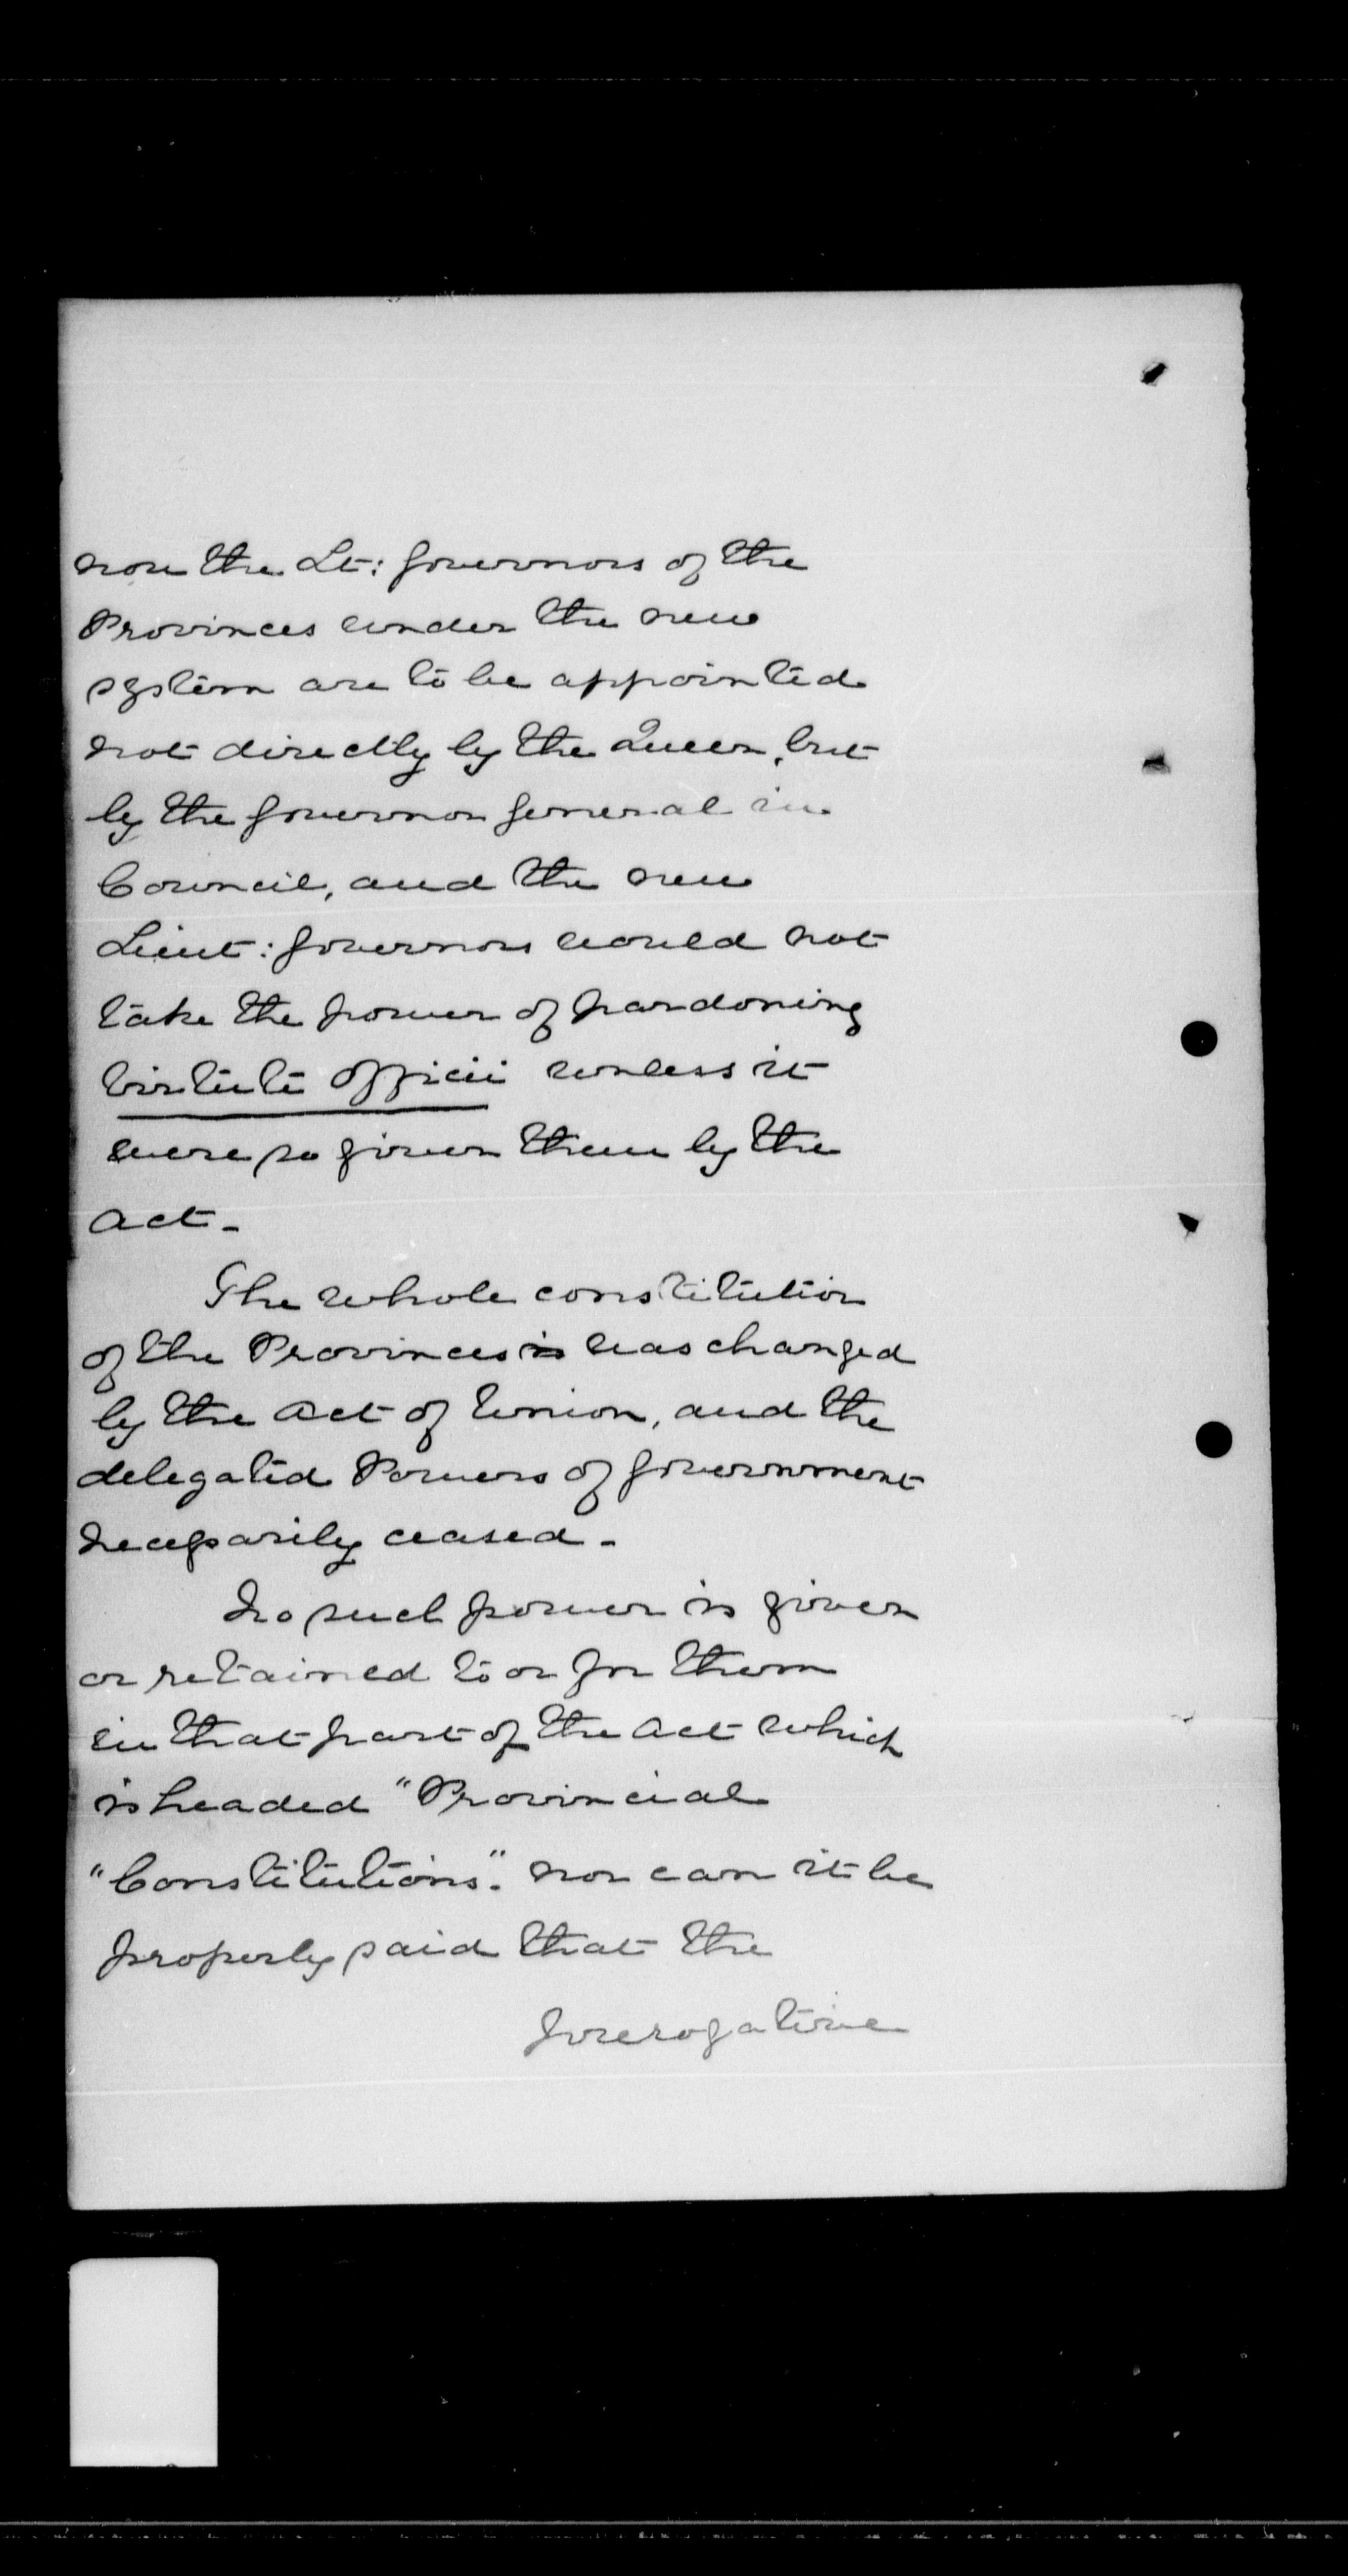 now the Lt: Governors of the
Provinces under the new
system are to be appointed
not directly by the Queen, but
by the Governor General in
Council, and the new
Lieut: Governors would not
take the power of pardoning
virtute officii unless it
were so given them by the
Act -
The whole constitution
of the Provinces is was changed
by the Act of Union, and the
delegated Powers of Government
necessarily ceased -
No such power is given
or retained to or for them
in that part of the Act which
is headed "Provincial
"Constitutions". nor can it be
properly said that the
prerogative